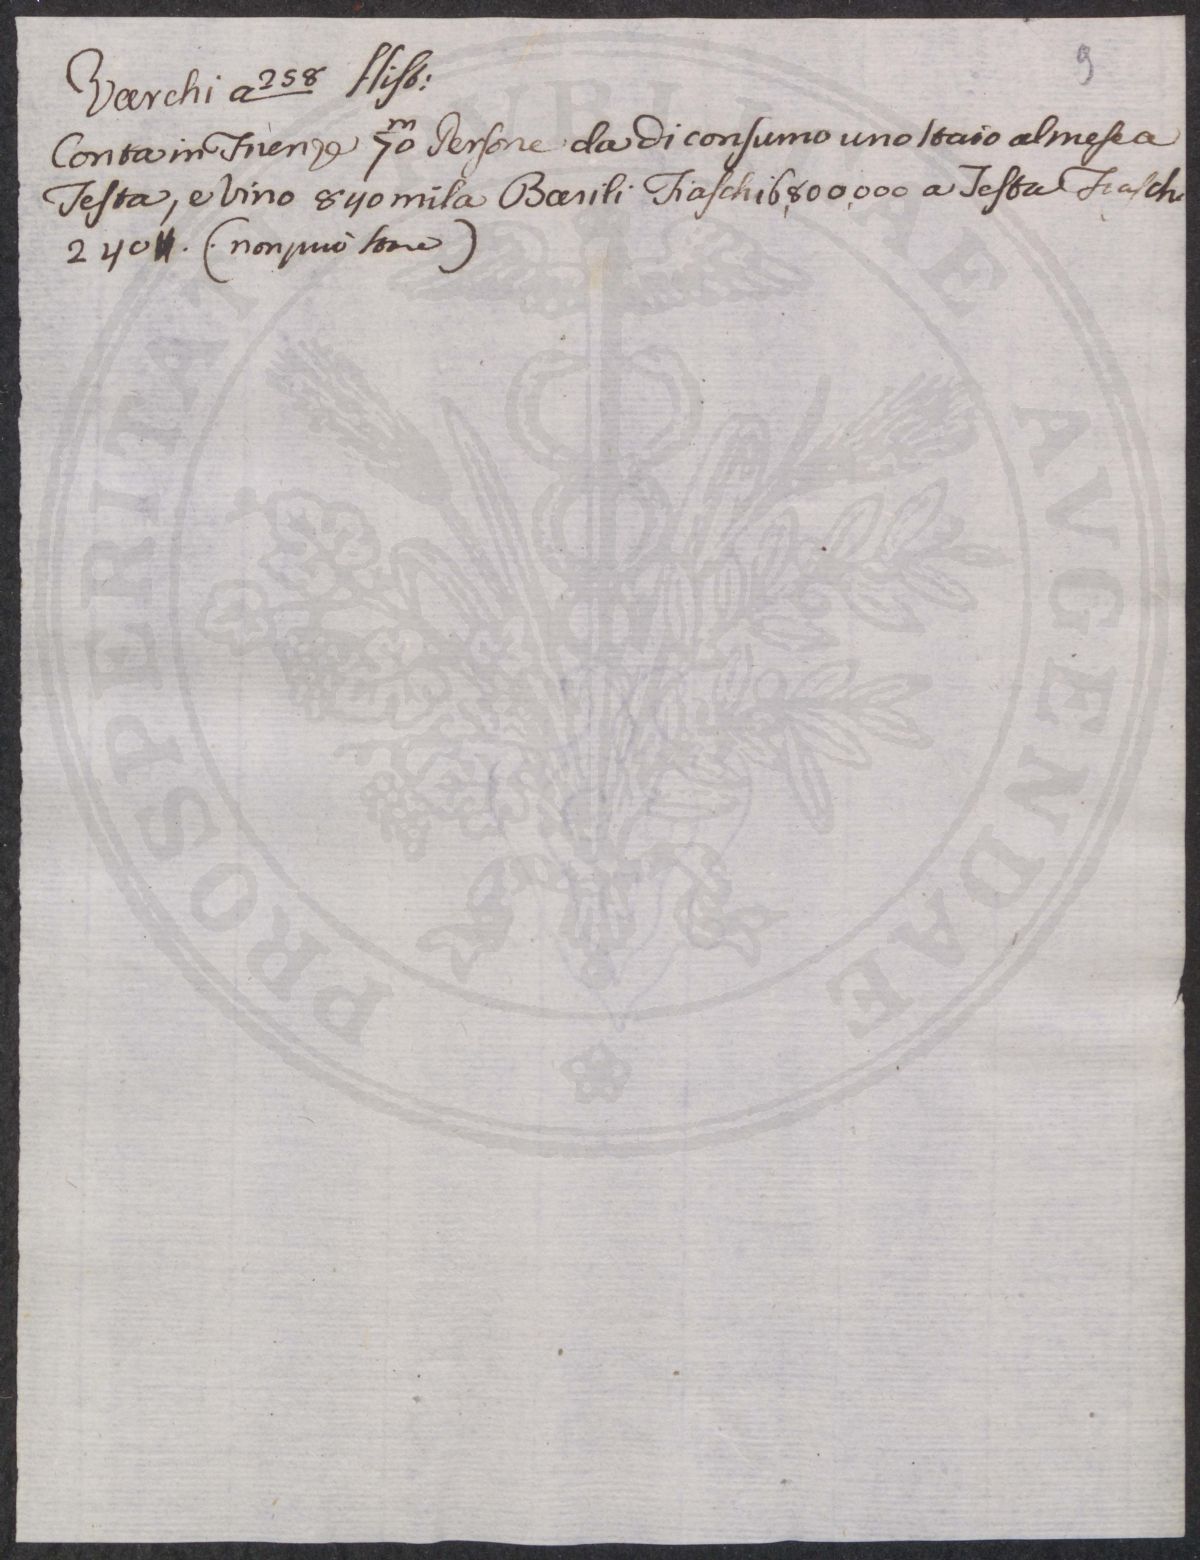 9
Varchi a 258 Hist:
Conta in Firenze 70m Persone da di consumo uno staio al mese a
Testa, e Vino 840 mila Barili Fiaschi 16,800,000 a Testa Fiaschi
240. (non può stare)
PROSPERITATI PUBLICAE AVGENDAE